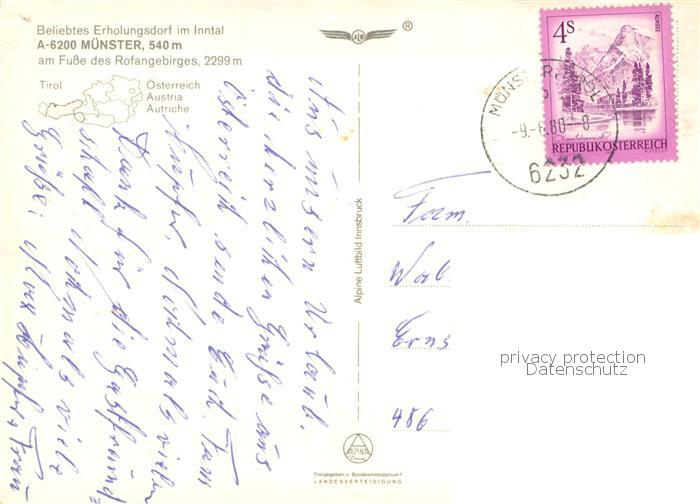 Beliebtes Erholungsdorf im Inntal
A-6200 MÜNSTER, 540 m
am Fuße des Rofangebirges, 2299 m
Tirol
Österreich
Austria
Autriche
®
4S
ALMSEE
REPUBLIK ÖSTERREICH
MÜNSTER, TIROL
-9.-6.80-8
6232
Urlaub,
die herzlichen Grüße aus
Österreich sende Euch Fam
Nochmals vielen
Dank für die Gastfreund=
schaft Nochmals viele
Grüße:
Fam.
Wal
Erns
486
Alpine Luftbild Innsbruck
privacy protection
Datenschutz
ALPINA
Druck
Freigegeben v. Bundesministerium f.
LANDESVERTEIDIGUNG